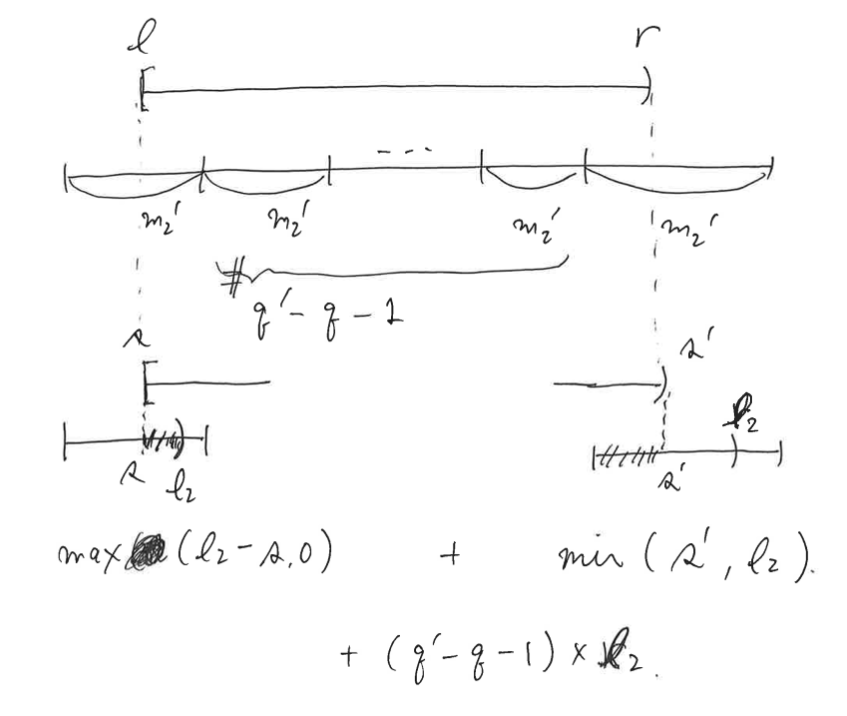 l r
- - -
m₂' m₂' m₂' m₂'
#
q' - q - 1
s s'
l₂
s l₂ s'
max (l₂ - s, 0) + min (s', l₂).
+ (q' - q - 1) × l₂.